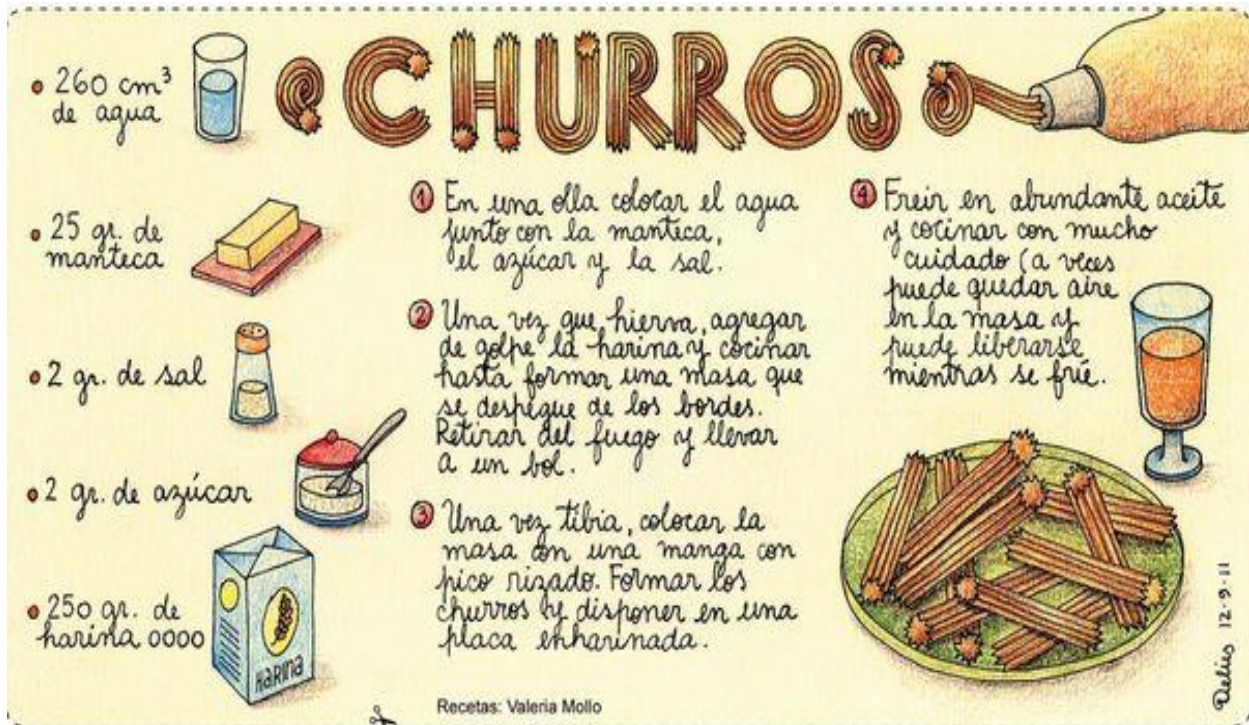 CHURROS
• 260 cm³
de agua
• 25 gr. de
manteca
• 2 gr. de sal
• 2 gr. de azúcar
• 250 gr. de
harina 0000
HARINA
1 En una olla colocar el agua
junto con la manteca,
el azúcar y la sal.
2 Una vez que hierva, agregar
de golpe la harina y cocinar
hasta formar una masa que
se despegue de los bordes.
Retirar del fuego y llevar
a un bol.
3 Una vez tibia, colocar la
masa en una manga con
pico rizado. Formar los
churros y disponer en una
placa enharinada.
4 Freír en abundante aceite
y cocinar con mucho
cuidado (a veces
puede quedar aire
en la masa y
puede liberarse
mientras se fríe.
Recetas: Valeria Mollo
Delius 12-9-11